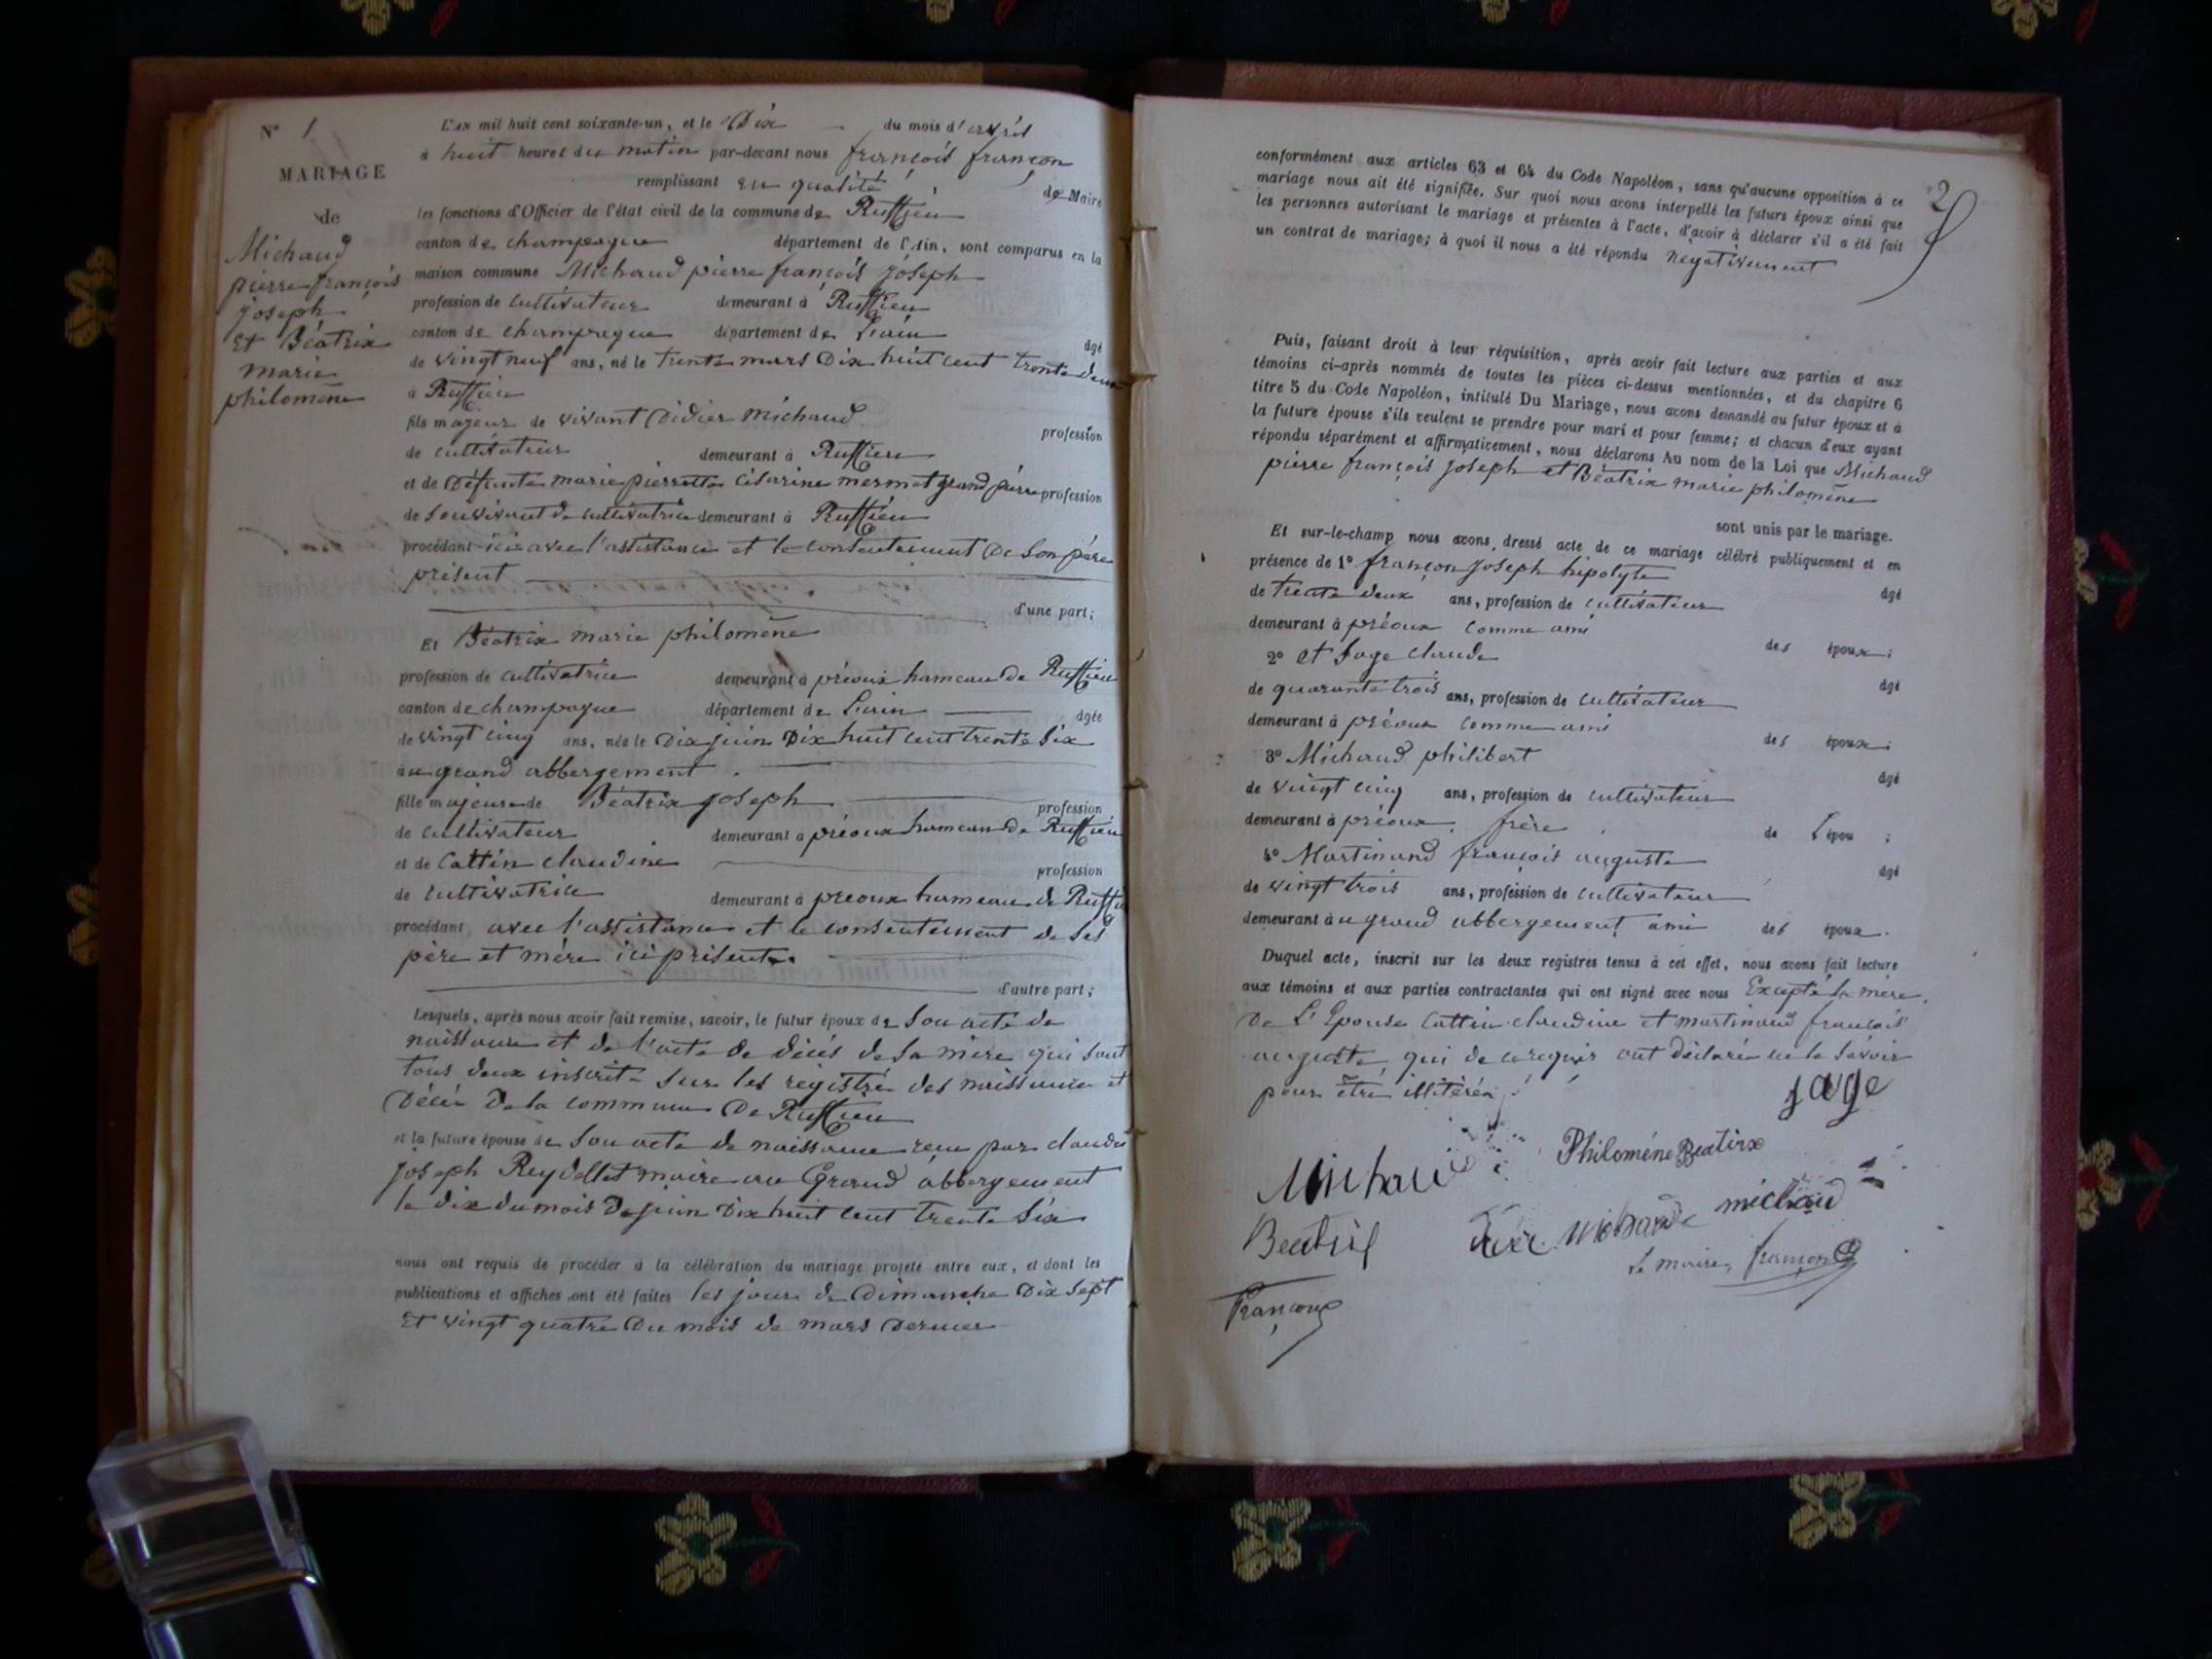 N° 1
MARIAGE
de
Michaud
pierre françois
joseph
et Béatrix
marie
philomène
L'AN mil huit cent soixante-un, et le Dix du mois d'avril
à huit heures du matin par-devant nous françois françon
remplissant en qualité de Maire
les fonctions d'Officier de l'état civil de la commune de Ruffieu
canton de champagne département de l'Ain, sont comparus en la
maison commune Michaud pierre françois joseph
profession de cultivateur demeurant à Ruffieu
canton de champagne département de L'ain âgé
de vingt neuf ans, né le trente mars Dix huit cent trente deux
à Ruffieu
fils majeur de vivant Didier Michaud profession
de cultivateur demeurant à Ruffieu
et de Défunte marie pierrette césarine mermet grand pierre profession
de son vivant de cultivatrice demeurant à Ruffieu
procédant ici avec l'assistance et le consentement De son père
présent
d'une part;
Et Béatrix marie philomène
profession de cultivatrice demeurant à préoux hameau de Ruffieu
canton de champagne département de L'ain âgée
de vingt cinq ans, née le Dix juin Dix huit cent trente six
au grand abbergement
fille majeure de Béatrix joseph profession
de cultivateur demeurant à préoux hameau de Ruffieu
et de Cattin claudine profession
de cultivatrice demeurant à préoux hameau de Ruffieu
procédant avec l'assistance et le consentement de ses
père et mère ici présents
d'autre part;
Lesquels, après nous avoir fait remise, savoir, le futur époux de son acte de
naissance et de l'acte de décès de sa mère qui sont
tous deux inscrit sur les régistré des naissance et
Décès De la commune De Ruffieu
et la future épouse de son acte de naissance reçu par claude
joseph Reydellet maire au Grand abbergement
le dix du mois De juin Dix huit cent trente six
nous ont requis de procéder à la célébration du mariage projeté entre eux, et dont les
publications et affiches ont été faites les jours de Dimanche Dix sept
et vingt quatre Du mois de mars Dernier
2
conformément aux articles 63 et 64 du Code Napoléon, sans qu'aucune opposition à ce
mariage nous ait été signifiée. Sur quoi nous avons interpellé les futurs époux ainsi que
les personnes autorisant le mariage et présentes à l'acte, d'avoir à déclarer s'il a été fait
un contrat de mariage; à quoi il nous a été répondu négativement
Puis, faisant droit à leur réquisition, après avoir fait lecture aux parties et aux
témoins ci-après nommés de toutes les pièces ci-dessus mentionnées, et du chapitre 6
titre 5 du Code Napoléon, intitulé Du Mariage, nous avons demandé au futur époux et à
la future épouse s'ils veulent se prendre pour mari et pour femme; et chacun d'eux ayant
répondu séparément et affirmativement, nous déclarons Au nom de la Loi que Michaud
pierre françois joseph et Béatrix marie philomène
sont unis par le mariage.
Et sur-le-champ nous avons dressé acte de ce mariage célébré publiquement et en
présence de 1° françon joseph hipolyte âgé
de trente deux ans, profession de cultivateur
demeurant à préoux comme ami des époux;
2° et Sage claude âgé
de quarante trois ans, profession de cultivateur
demeurant à préoux comme ami des époux;
3° Michaud philibert âgé
de vingt cinq ans, profession de cultivateur
demeurant à préoux frère de L'épou ;
4° Martinand françois auguste âgé
de vingt trois ans, profession de cultivateur
demeurant à u grand abbergement ami des époux.
Duquel acte, inscrit sur les deux registres tenus à cet effet, nous avons fait lecture
aux témoins et aux parties contractantes qui ont signé avec nous Excepté la mère
De L'Epouse Cattin claudine et martinand françois
auguste qui de ce requis ont déclaré ne le savoir
pour être illitéré
sage
Michaud Philomène Beatrix
Beatrix Michaud michaud
le maire, françon
Françon